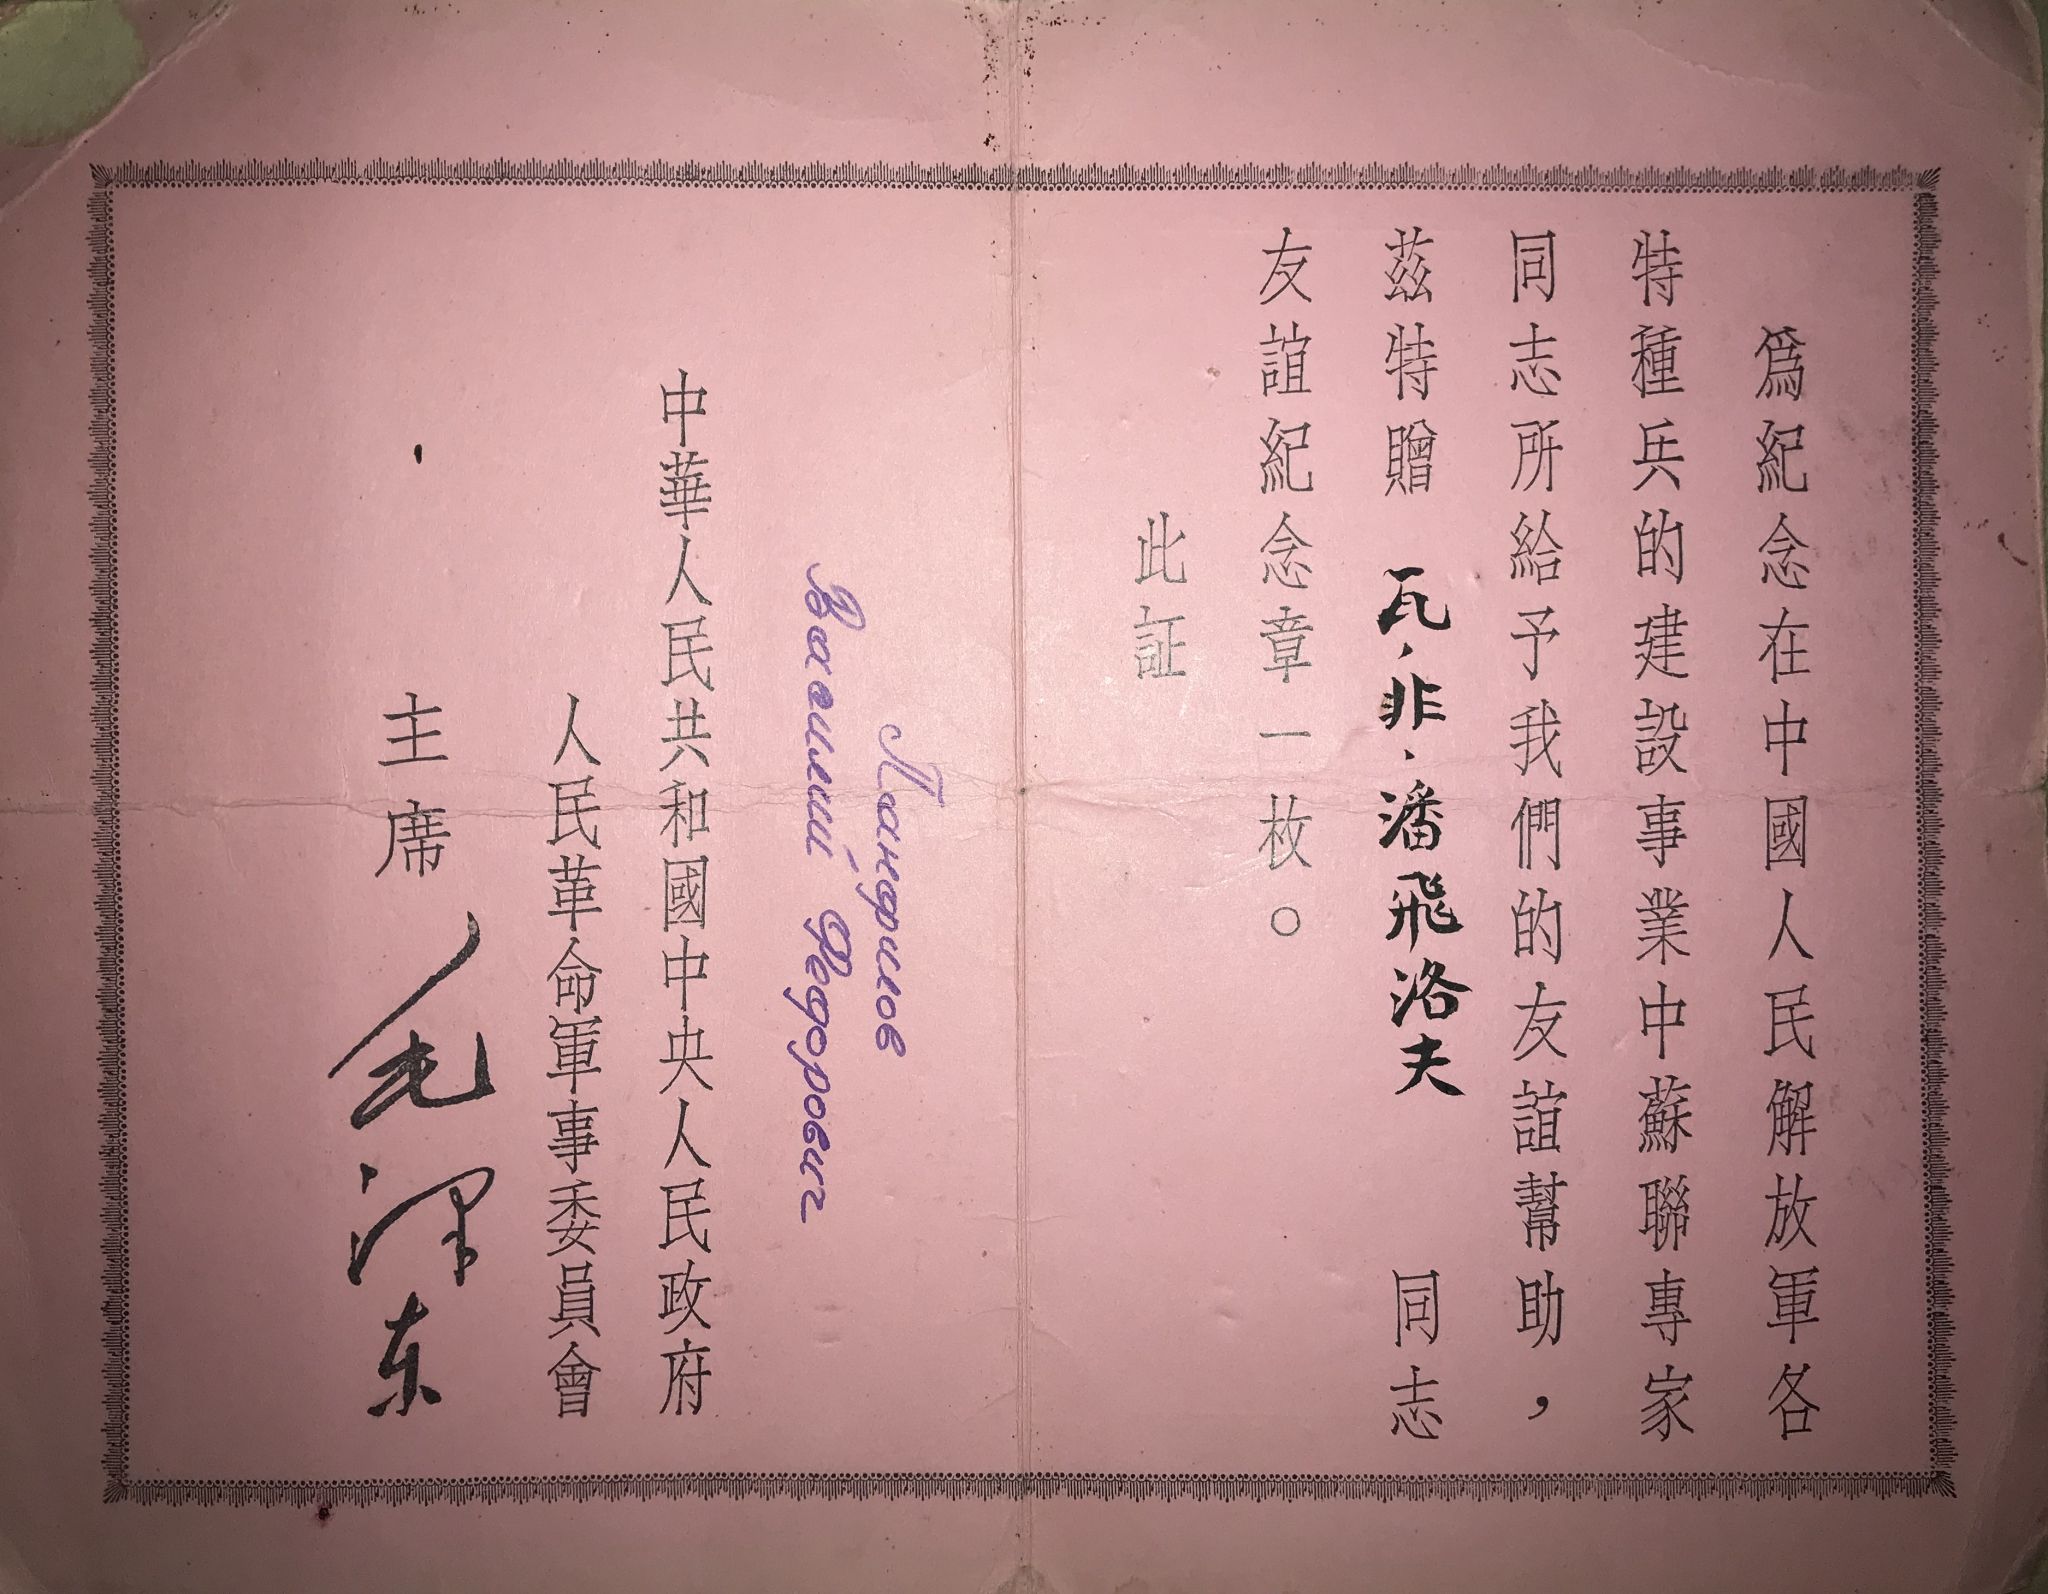 爲紀念在中國人民解放軍各
特種兵的建設事業中蘇聯專家
同志所給予我們的友誼幫助，
茲特贈 瓦·非·潘飛洛夫 同志
友誼紀念章一枚。
此証
Панфилов
Василий Федорович
中華人民共和國中央人民政府
人民革命軍事委員會
主席 毛泽东